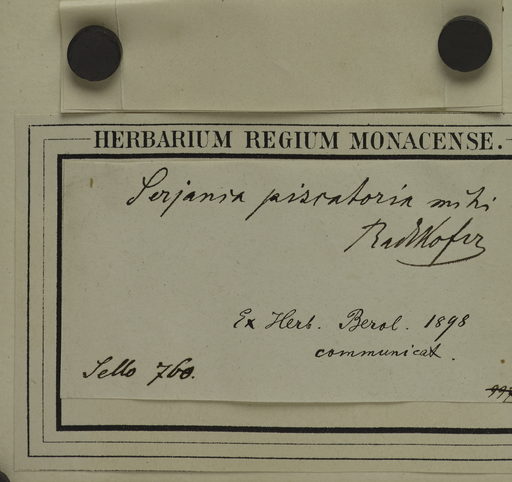 HERBARIUM REGIUM MONACENSE.
Serjania piscatoria mihi
Radlkofer
Ex Herb. Berol. 1898
communicat.
Sello 760.